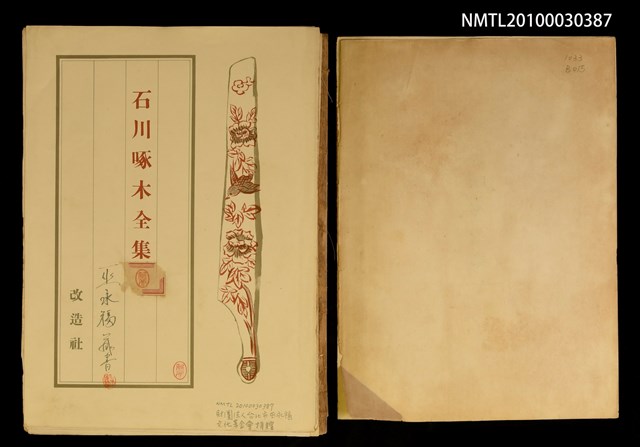 NMTL20100030387
石川啄木全集
改造社
巫永福藏書
NMTL 20100030387
財團法人台北市巫永福
文化基金會捐贈